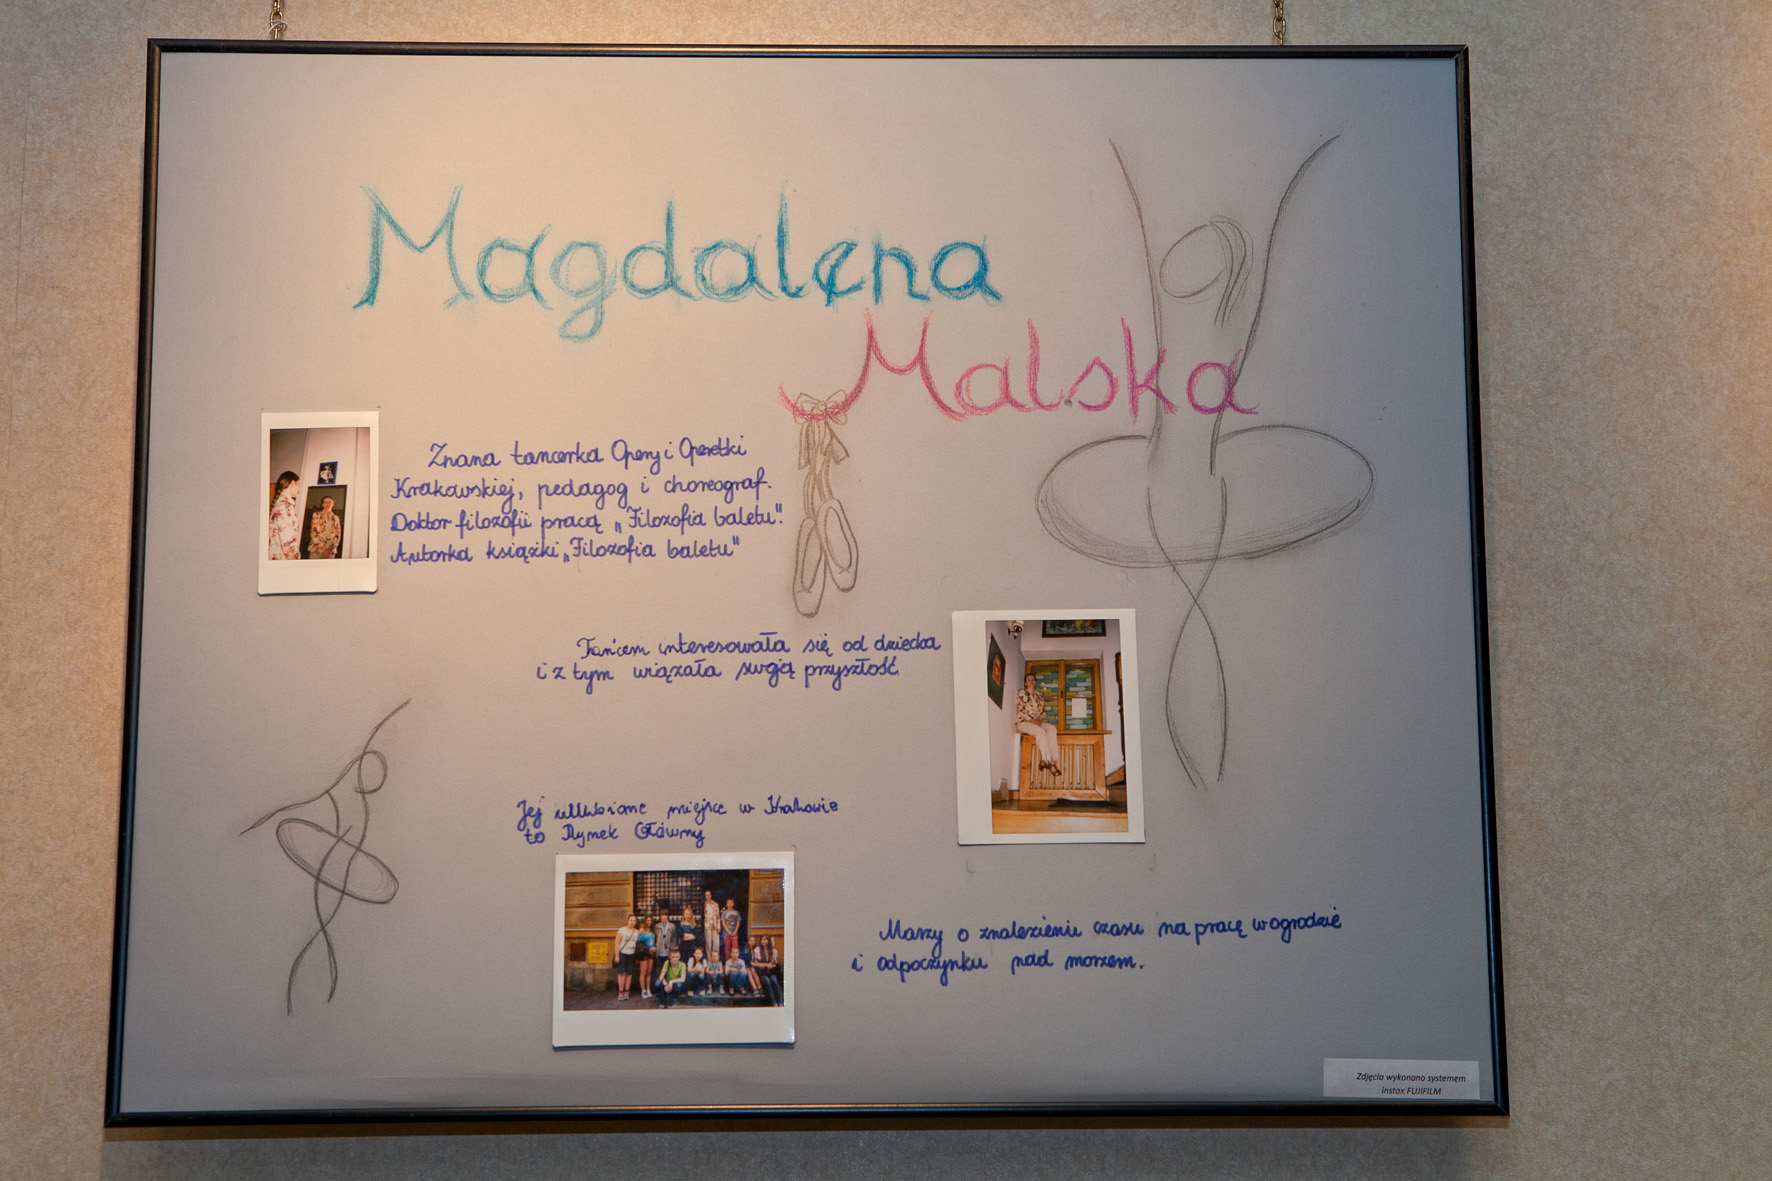 Magdalena
Malska
Znana tancerka Opery i Operetki
Krakowskiej, pedagog i choreograf.
Doktor filozofii pracą „Filozofia baletu".
Autorka książki „Filozofia baletu"
Tańcem interesowała się od dziecka
i z tym wiązała swoją przyszłość
Jej ulubione miejsce w Krakowie
to Rynek Główny
Marzy o znalezieniu czasu na pracę w ogrodzie
i odpoczynku nad morzem.
Zdjęcia wykonano systemem
instax FUJIFILM